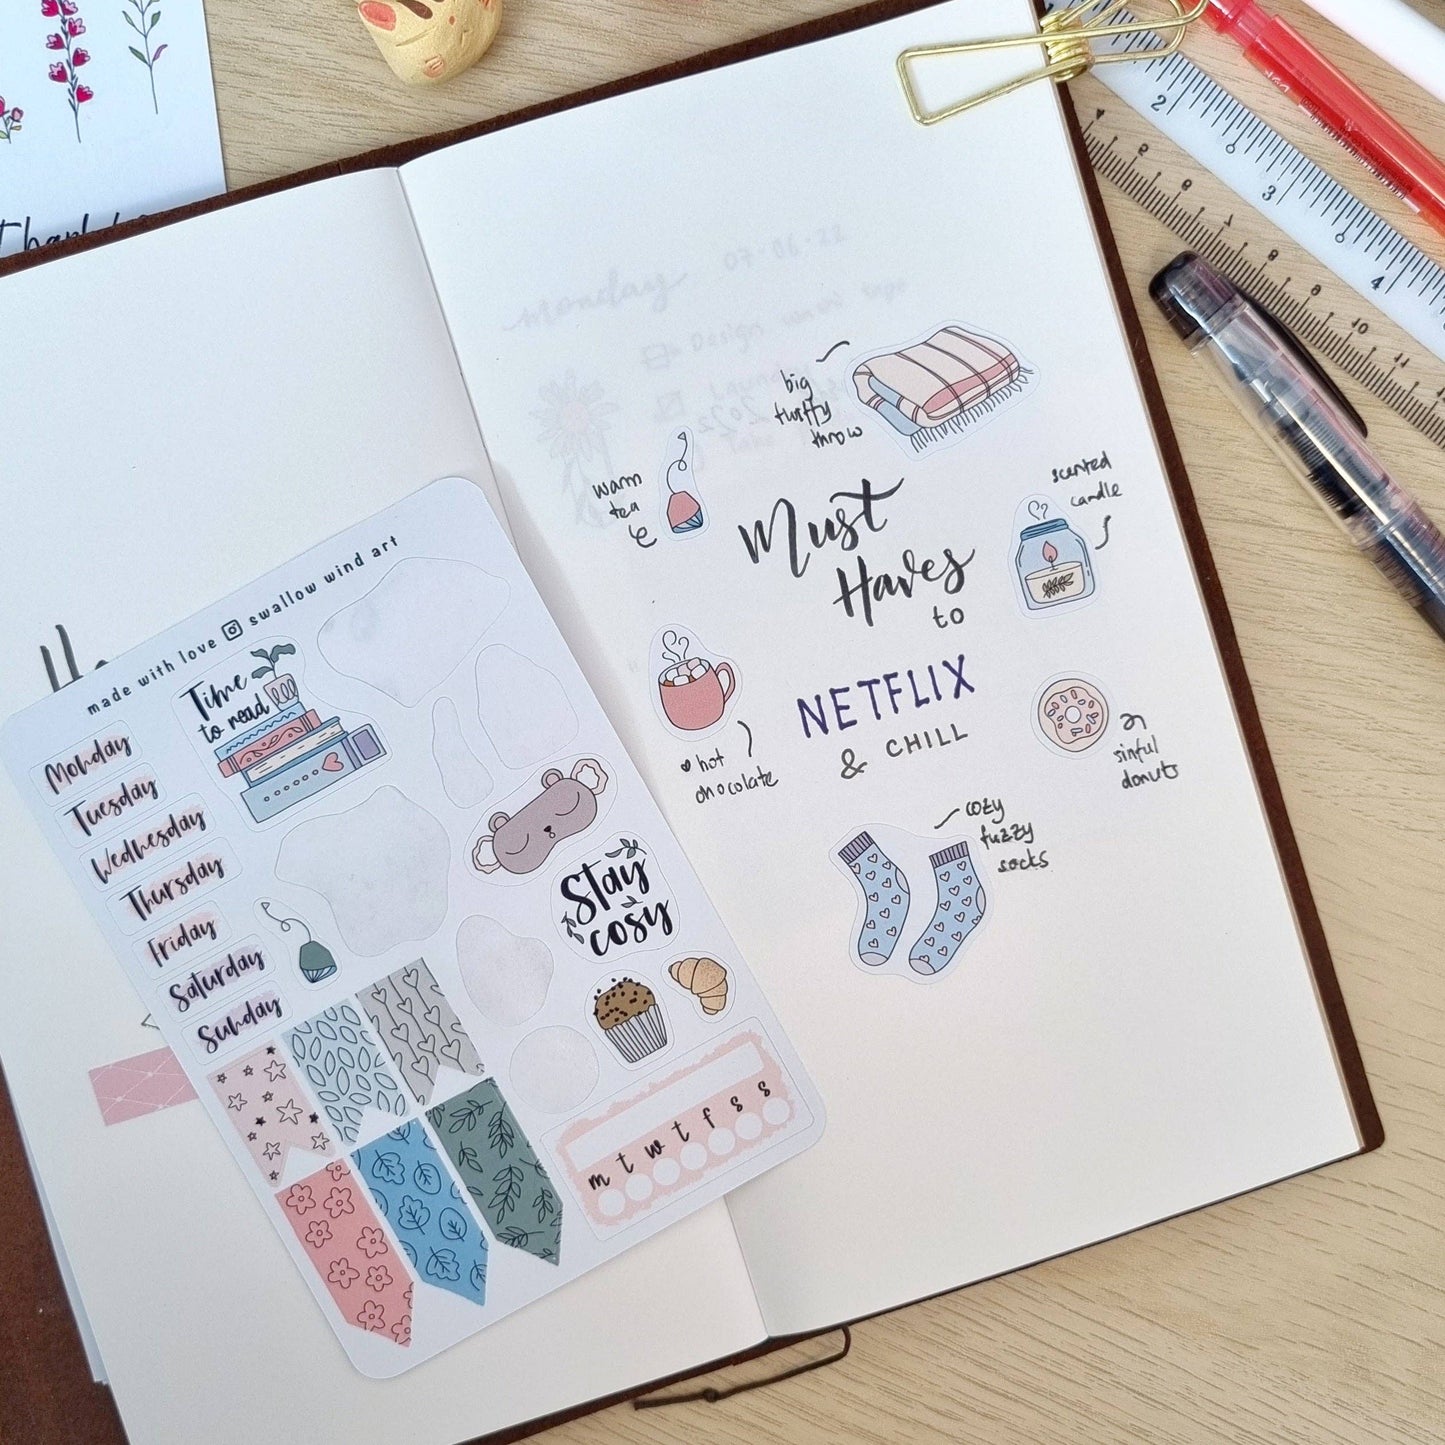 made with love swallow wind art
Time
to read
Monday
Tuesday
Wednesday
Thursday
Friday
Saturday
Sunday
Stay
cosy
m t w t f s s
Monday 07.06.22
Design washi tape
big
fluffy
throw
warm
tea
scented
candle
Must
Haves
to
NETFLIX
& CHILL
hot
chocolate
sinful
donuts
cozy
fuzzy
socks
2
3
4
5
6
7
8
9
10
11